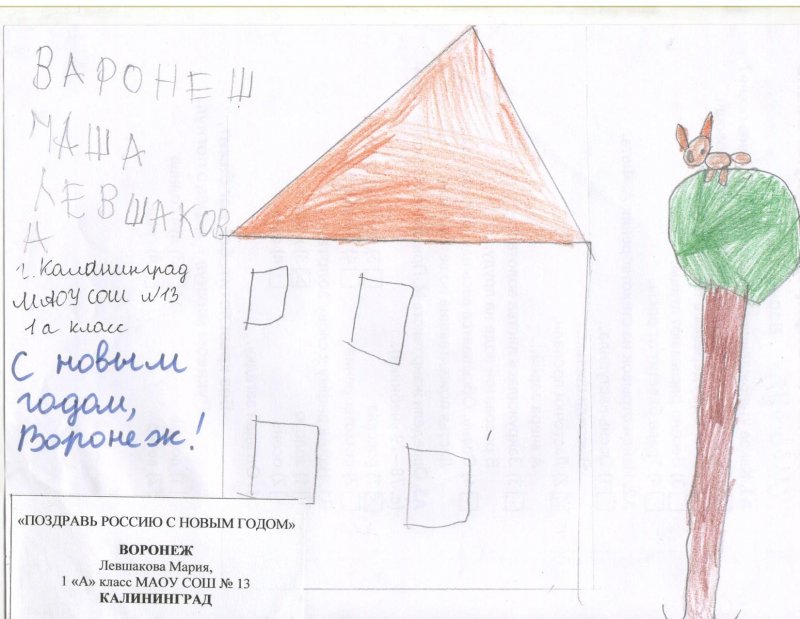 ВАРОНЕШ
МАША
ЛЕВШАКОВ
А
г. Калининград
МАОУ СОШ №13
1 а класс
С новым
годом,
Воронеж!
«ПОЗДРАВЬ РОССИЮ С НОВЫМ ГОДОМ»
ВОРОНЕЖ
Левшакова Мария,
1 «А» класс МАОУ СОШ № 13
КАЛИНИНГРАД